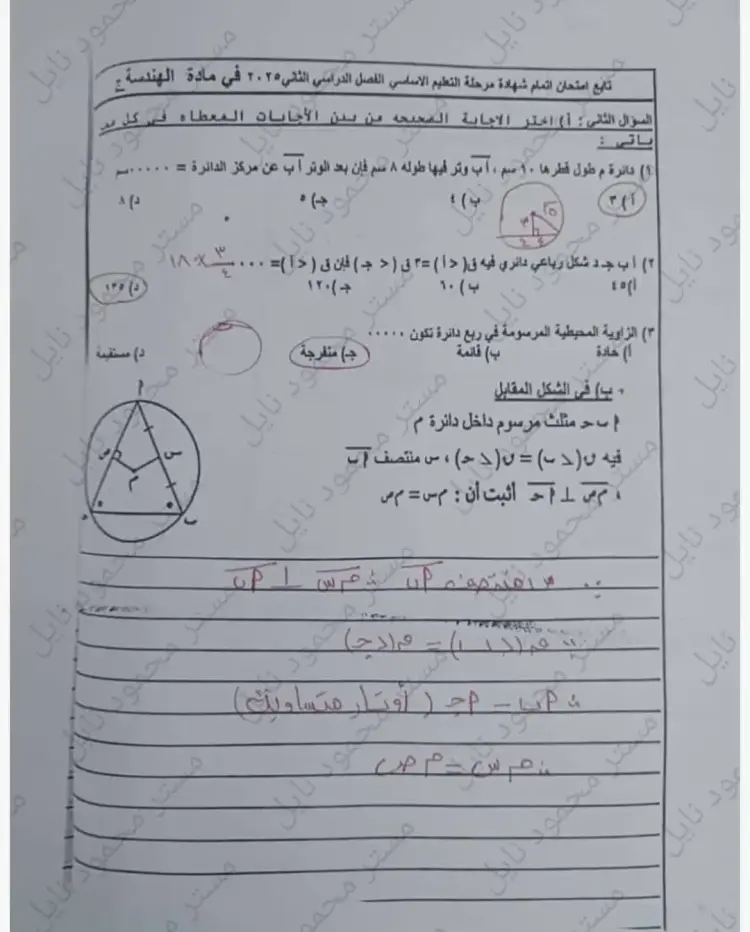 تابع امتحان اتمام شهادة مرحلة التعليم الاساسي الفصل الدراسي الثاني ٢٠٢٥ في مادة الهندسة
السؤال الثاني : أ) اختر الاجابة الصحيحه من بين الأجابات المعطاه في كل مما
ياتي :
١) دائرة م طول قطرها ١٠ سم ، أ ب وتر فيها طوله ٨ سم فإن بعد الوتر أ ب عن مركز الدائرة = ..... سم
أ) ٣ ب) ٤ جـ) ٥ د) ٨
٢) أ ب جـ د شكل رباعي دائري فيه ق(< أ) = ٣ ق (< جـ) فإن ق (< أ) = ...
أ) ٤٥ ب) ٦٠ جـ) ١٢٠ د) ١٣٥
٣) الزاوية المحيطية المرسومة في ربع دائرة تكون .....
أ) حادة ب) قائمة جـ) منفرجة د) مستقيمة
ب) في الشكل المقابل
أ ب حـ مثلث مرسوم داخل دائرة م
فيه ق(< ب) = ق(< حـ) ، س منتصف أ ب
، م ص ⊥ أ حـ أثبت أن : م س = م ص
∵ س منتصف أ ب ∴ م س ⊥ أ ب
= ق(< جـ)
∴ أ ب = أ جـ ( أوتار متساوية )
∴ م س = م ص
مستر محمود نايل